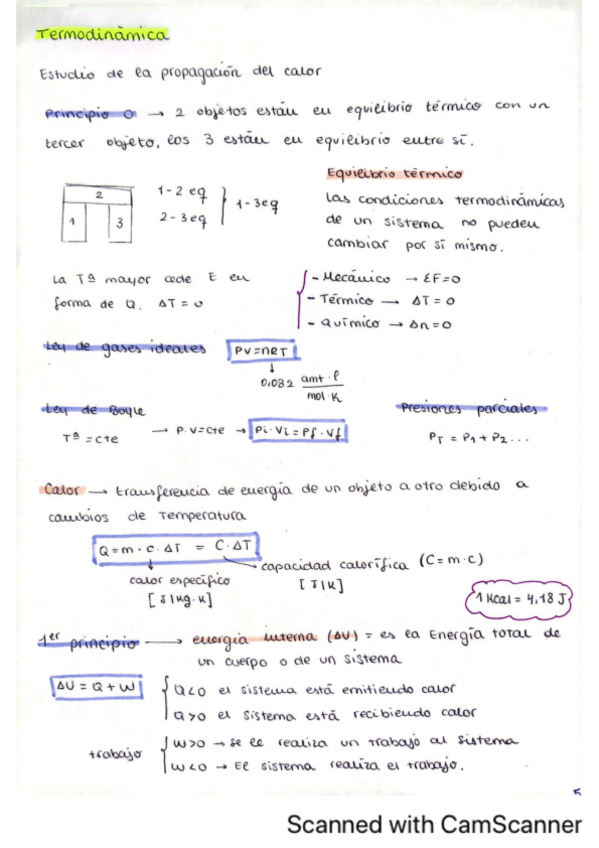 Termodinámica
Estudio de la propagación del calor
Principio 0 → 2 objetos están en equilibrio térmico con un
tercer objeto, los 3 están en equilibrio entre sí.
2
1
3
1-2 eq
2-3 eq
1-3 eq
Equilibrio térmico
Las condiciones termodinámicas
de un sistema no pueden
cambiar por sí mismo.
La Tª mayor cede E en
forma de Q. ΔT = 0
- Mecánico → ΣF=0
- Térmico → ΔT = 0
- Químico → Δn=0
Ley de gases ideales
PV=nRT
↓
0,082 amt·l / mol·K
Ley de Boyle
Tª = cte
→ P·V=cte → Pi·Vi = Pf·Vf
Presiones parciales
PT = P1 + P2 ...
Calor → transferencia de energía de un objeto a otro debido a
cambios de Temperatura
Q = m · c · ΔT = C·ΔT
calor específico
[J/kg·K]
capacidad calorífica (C = m·c)
[J/K]
1 Kcal = 4,18 J
1er principio → energía interna (ΔU) = es la Energía total de
un cuerpo o de un sistema
ΔU = Q + W
Q<0 el sistema está emitiendo calor
Q>0 el sistema está recibiendo calor
trabajo
W>0 → se le realiza un trabajo al sistema
W<0 → El sistema realiza el trabajo.
5
Scanned with CamScanner